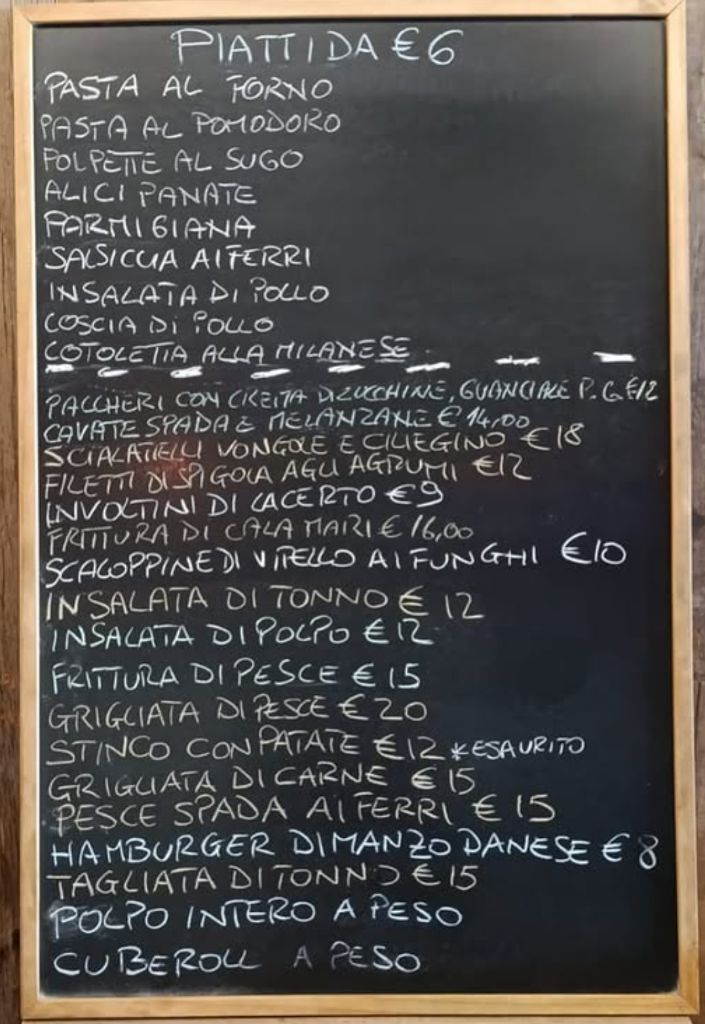 PIATTI DA €6
PASTA AL FORNO
PASTA AL POMODORO
POLPETTE AL SUGO
ALICI PANATE
PARMIGIANA
SALSICCIA AI FERRI
INSALATA DI POLLO
COSCIA DI POLLO
COTOLETTA ALLA MILANESE
PACCHERI CON CREMA DI ZUCCHINE, GUANCIALE P.G €12
CAVATE SPADA E MELANZANE € 14,00
SCIALATIELLI VONGOLE E CILIEGINO €18
FILETTI DI SPIGOLA AGLI AGRUMI €12
INVOLTINI DI LACERTO €9
FRITTURA DI CALAMARI € 16,00
SCALOPPINE DI VITELLO AI FUNGHI €10
INSALATA DI TONNO € 12
INSALATA DI POLPO € 12
FRITTURA DI PESCE € 15
GRIGLIATA DI PESCE €20
STINCO CON PATATE €12 *ESAURITO
GRIGLIATA DI CARNE €15
PESCE SPADA AI FERRI € 15
HAMBURGER DI MANZO DANESE € 8
TAGLIATA DI TONNO €15
POLPO INTERO A PESO
CUBEROLL A PESO